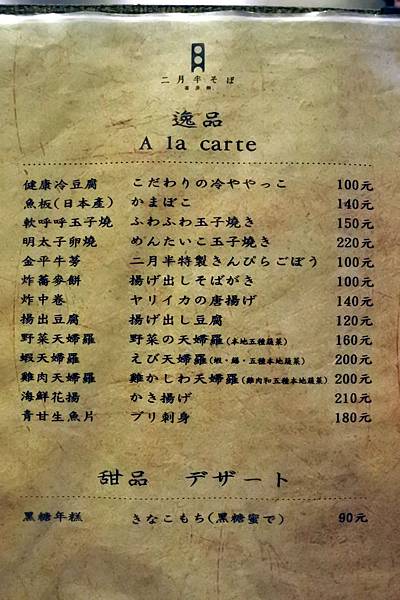 二月半そば
蕎麥麵
逸品
A la carte
健康冷豆腐 こだわりの冷ややっこ 100元
魚板(日本產) かまぼこ 140元
軟呼呼玉子燒 ふわふわ玉子焼き 150元
明太子卵燒 めんたいこ玉子焼き 220元
金平牛蒡 二月半特製きんぴらごぼう 100元
炸蕎麥餅 揚げ出しそばがき 100元
炸中卷 ヤリイカの唐揚げ 140元
揚出豆腐 揚げ出し豆腐 120元
野菜天婦羅 野菜の天婦羅(本地五種蔬菜) 160元
蝦天婦羅 えび天婦羅(蝦、鱚、五種本地蔬菜) 200元
雞肉天婦羅 雞かしわ天婦羅(雞肉和五種本地蔬菜) 200元
海鮮花揚 かき揚げ 210元
青甘生魚片 ブリ刺身 180元
甜品 デザート
黑糖年糕 きなこもち(黑糖蜜で) 90元